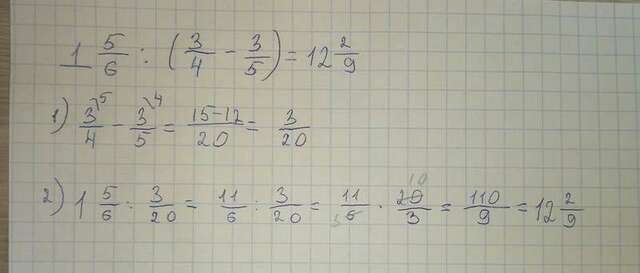 1 5/6 : (3/4 - 3/5) = 12 2/9
1) 3/4 \5 - 3/5 \4 = 15-12/20 = 3/20
2) 1 5/6 : 3/20 = 11/6 : 3/20 = 11/6 3 · 20 10/3 = 110/9 = 12 2/9